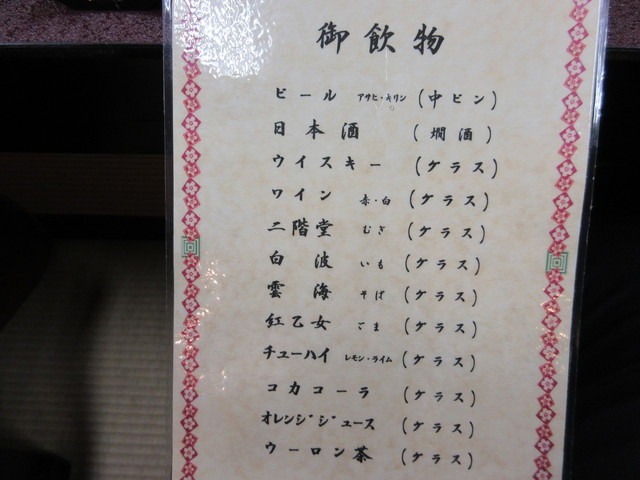 御飲物
ビール アサヒ・キリン (中ビン)
日本酒 (燗酒)
ウイスキー (グラス)
ワイン 赤・白 (グラス)
二階堂 むぎ (グラス)
白波 いも (グラス)
雲海 そば (グラス)
紅乙女 ごま (グラス)
チューハイ レモン・ライム (グラス)
コカコーラ (グラス)
オレンジジュース (グラス)
ウーロン茶 (グラス)